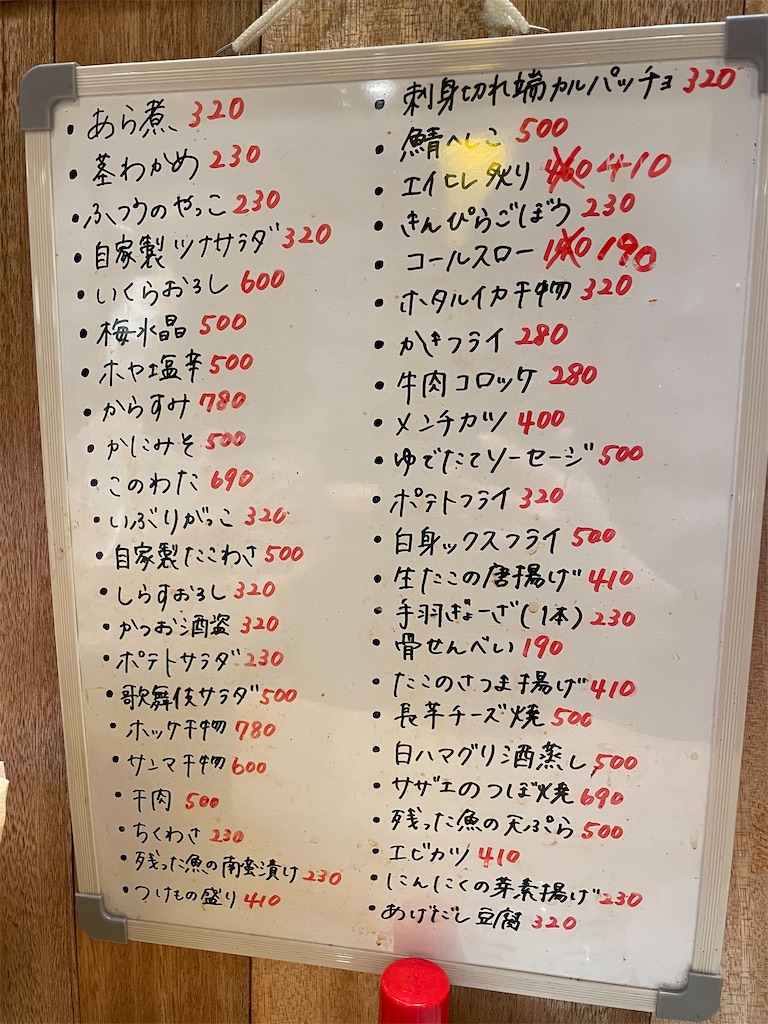 ・あら煮 320
・茎わかめ 230
・ふつうのやっこ 230
・自家製ツナサラダ 320
・いくらおろし 600
・梅水晶 500
・ホヤ塩辛 500
・からすみ 780
・かにみそ 500
・このわた 690
・いぶりがっこ 320
・自家製たこわさ 500
・しらすおろし 320
・かつお酒盗 320
・ポテトサラダ 230
・歌舞伎サラダ 500
・ホッケ干物 780
・サンマ干物 600
・干肉 500
・ちくわさ 230
・残った魚の南蛮漬け 230
・つけもの盛り 410
・刺身切れ端カルパッチョ 320
・鯖へしこ 500
・エイヒレ炙り 410
・きんぴらごぼう 230
・コールスロー 190
・ホタルイカ干物 320
・かきフライ 280
・牛肉コロッケ 280
・メンチカツ 400
・ゆでたてソーセージ 500
・ポテトフライ 320
・白身ックスフライ 500
・生たこの唐揚げ 410
・手羽ぎょーざ(1本) 230
・骨せんべい 190
・たこのさつま揚げ 410
・長芋チーズ焼 500
・白ハマグリ酒蒸し 500
・サザエのつぼ焼 690
・残った魚の天ぷら 500
・エビカツ 410
・にんにくの芽素揚げ 230
・あげだし豆腐 320